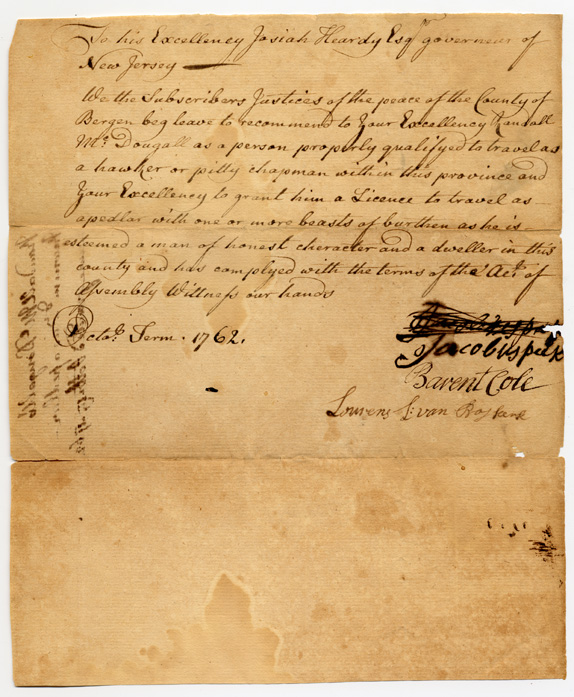 To his Excellency Josiah Heardy Esqr governeur of
New Jersey
We the Subscribers Justices of the peace of the County of
Bergen beg leave to recommend to Your Excellency Randall
Mc. Dougall as a person properly qualifyed to travel as
a hawker or pitty chapman within this province and
Your Excellency to grant him a Licence to travel as
a pedlar with one or more beasts of burthen as he is
esteemed a man of honest cherecter and a dweller in this
county and has complyed with the terms of the Act of
Assembly Wittness our hands
Octobr. Term. 1762.
Jacobus peek
Barent Cole
Lourens L: van